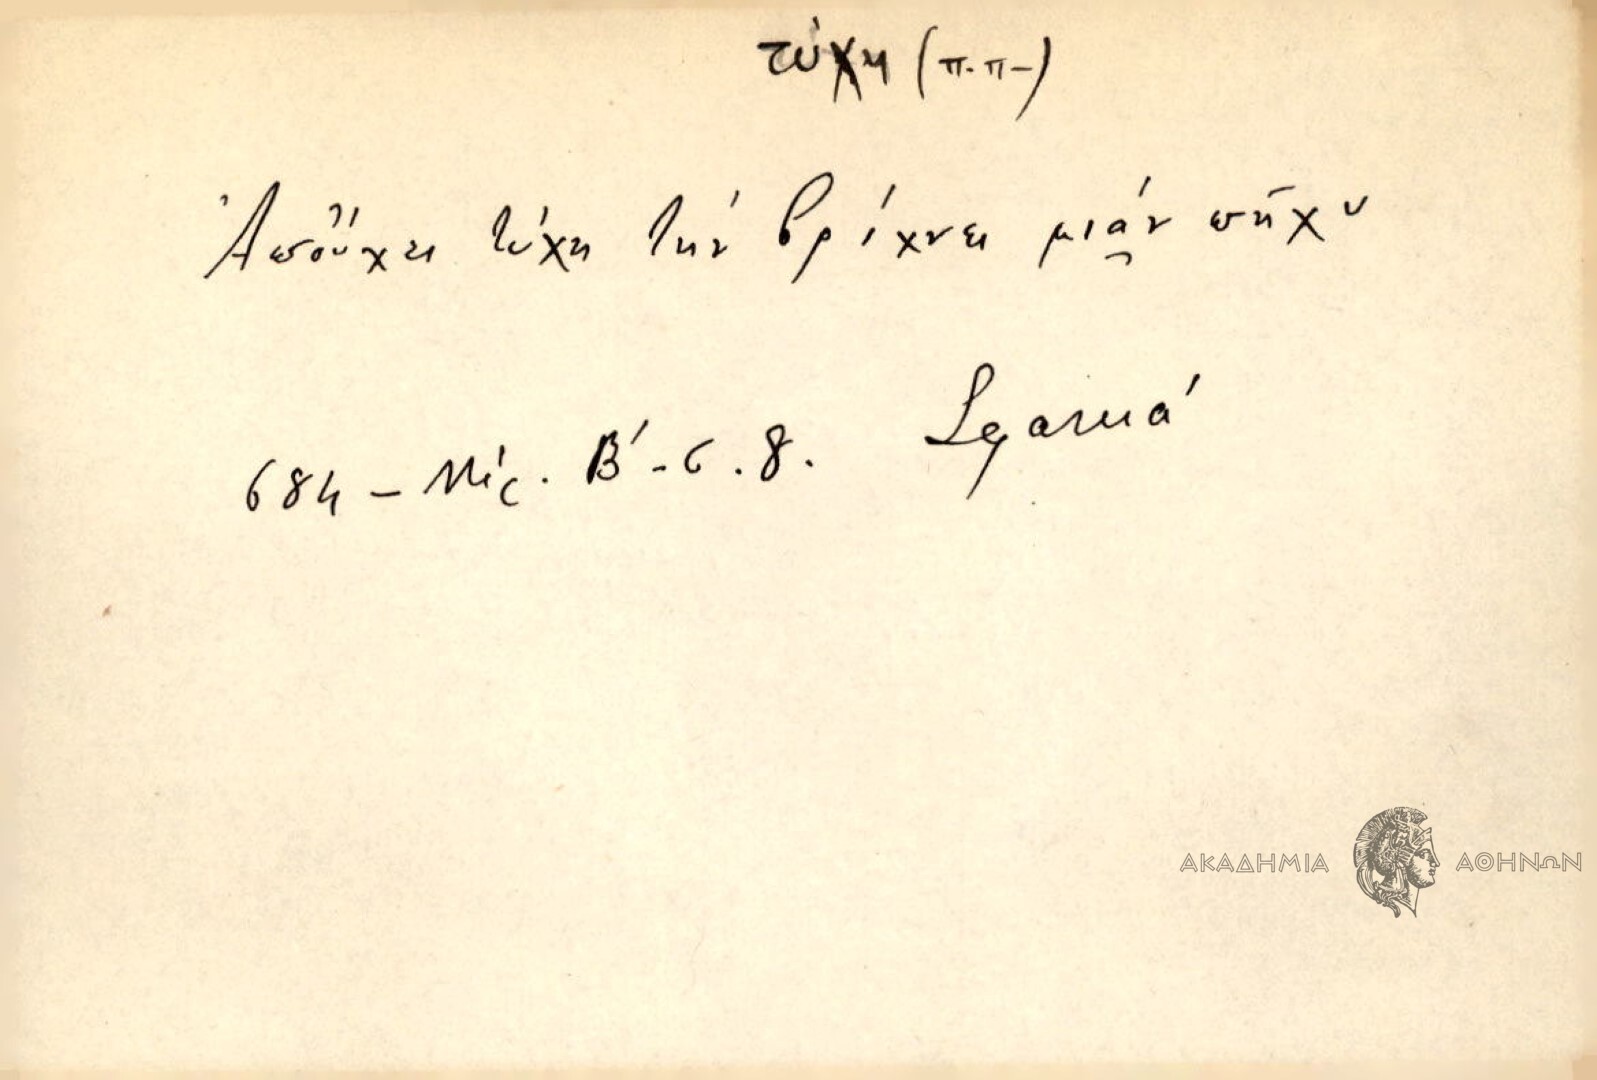 τύχη (π.π-)
Ἀπὄύχει τύχη τήν βρίχνει μιάν πῆχυ
684 - Μίς. Β' - σ. 8. Σφακιά
ΑΚΑΔΗΜΙΑ ΑΘΗΝΩΝ